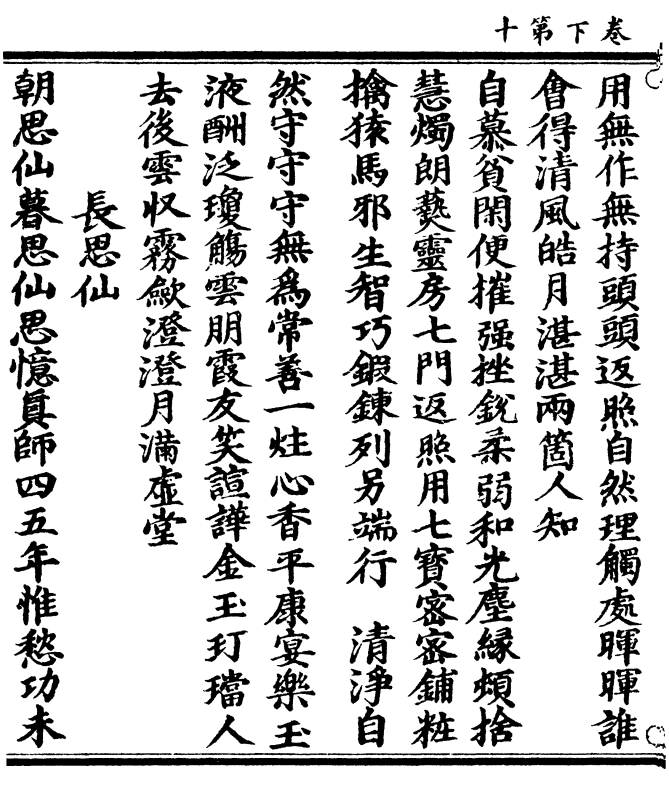 卷下第十
用無作無持頭頭返照自然理觸處暉暉誰
會得清風皓月湛湛兩箇人知
自慕貧閑便摧强挫銳柔弱和光塵緣頻捨
慧燭朗爇靈房七門返照用七寶密密鋪粧
擒猿馬邪生智巧鍛鍊列另端行　清淨自
然守守守無爲常善一炷心香平康宴樂玉
液酬泛瓊觴雲朋霞友笑諠譁金玉玎璫人
去後雲収霧歛澄澄月滿虛堂
長思仙
朝思仙暮思仙思憶眞師四五年惟愁功未